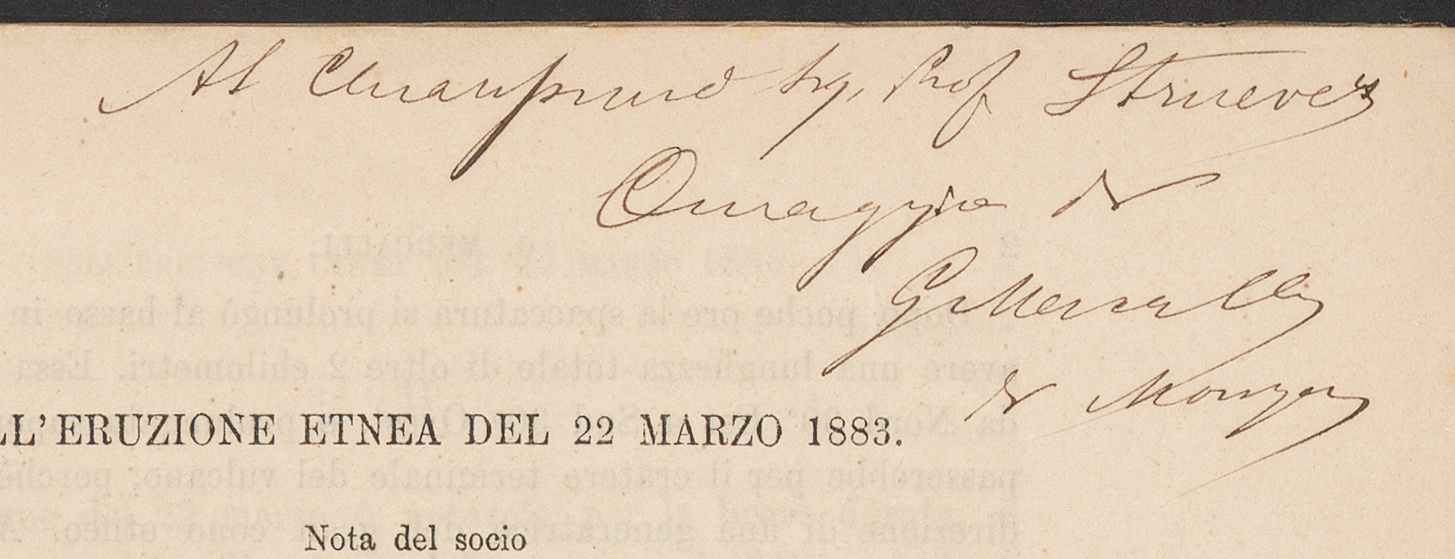 Al Chiarissimo Sig. Prof Strüever
Omaggio di
G. Mercalli
di Monza
LL' ERUZIONE ETNEA DEL 22 MARZO 1883.
Nota del socio